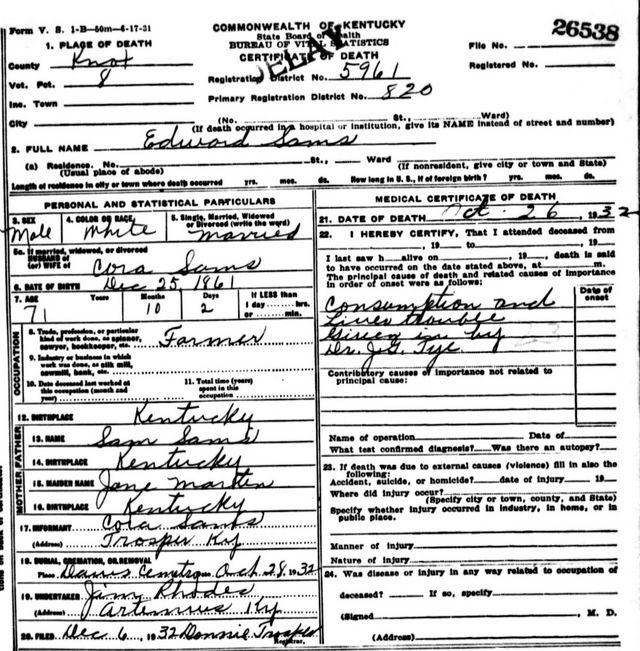 Form V. S. 1-B—50m—4-17-31
COMMONWEALTH OF KENTUCKY
State Board of Health
BUREAU OF VITAL STATISTICS
CERTIFICATE OF DEATH
DELAY
26538
File No.
Registered No.
1. PLACE OF DEATH
County Knox
Vot. Pct. 8
Inc. Town
City
Registration District No. 5961
Primary Registration District No. 820
(No. St., Ward)
(If death occurred in a hospital or institution, give its NAME instead of street and number)
2. FULL NAME Edward Sams
(a) Residence. No. St., Ward
(Usual place of abode) (If nonresident, give city or town and State)
Length of residence in city or town where death occurred yrs. mos. ds. How long in U. S., if of foreign birth? yrs. mos. ds.
PERSONAL AND STATISTICAL PARTICULARS
3. SEX Male
4. COLOR OR RACE White
5. Single, Married, Widowed or Divorced (write the word) Married
5a. If married, widowed, or divorced
HUSBAND of
(or) WIFE of Cora Sams
6. DATE OF BIRTH Dec 25, 1861
7. AGE Years Months Days If LESS than
71 10 2 1 day hrs.
or min.
OCCUPATION
8. Trade, profession, or particular
kind of work done, as spinner,
sawyer, bookkeeper, etc. Farmer
9. Industry or business in which
work was done, as silk mill,
sawmill, bank, etc.
10. Date deceased last worked at
this occupation (month and
year)
11. Total time (years)
spent in this
occupation
12. BIRTHPLACE Kentucky
FATHER
13. NAME Sam Sams
14. BIRTHPLACE Kentucky
MOTHER
15. MAIDEN NAME Jane Martin
16. BIRTHPLACE Kentucky
17. INFORMANT Cora Sams
(Address) Trosper Ky
18. BURIAL, CREMATION, OR REMOVAL
Place Davis Cemetry Oct 28 1932
19. UNDERTAKER Jim Rhodes
(Address) Artemus Ky
20. FILED Dec 6, 1932 Donnie Trosper
Registrar.
MEDICAL CERTIFICATE OF DEATH
21. DATE OF DEATH Oct. 26, 1932
22. I HEREBY CERTIFY, That I attended deceased from
, 19 to , 19
I last saw h alive on , 19 , death is said
to have occurred on the date stated above, at m.
The principal cause of death and related causes of importance
in order of onset were as follows:
Date of
onset
Consumption and
Liver trouble
Given in by
Dr. J.G. Tye
Contributory causes of importance not related to
principal cause:
Name of operation Date of
What test confirmed diagnosis? Was there an autopsy?
23. If death was due to external causes (violence) fill in also the
following:
Accident, suicide, or homicide? date of injury 19
Where did injury occur?
(Specify city or town, county, and State)
Specify whether injury occurred in industry, in home, or in
public place.
Manner of injury
Nature of injury
24. Was disease or injury in any way related to occupation of
deceased? If so, specify
(Signed) , M. D.
(Address)